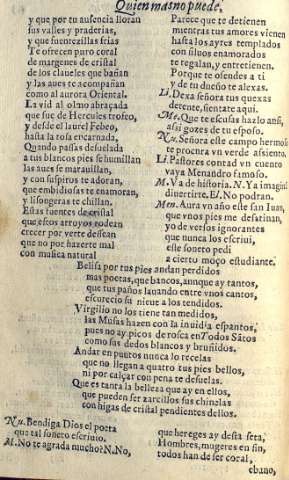 Quien mas no puede,
y que por tu ausencia lloran
sus valles y praderias,
y que fuenrezillas frias
Te ofrecen puro coral
de margenes de cristal
de los claueles que bañan
y las aues te acompañan
como al aurora Oriental.
La vid al olmo abraçada
que fue de Hercules trofeo,
y desde el laurel Febeo,
hasta la rosa encarnada,
Quando passas desuelada
a tus blancos pies se humillan
las aues se marauillan,
y con suspiros te adoran,
que embidiosas te enamoran,
y lisongeras te chillan.
Estas fuentes de cristal
que estos arroyos rodean
crecer por verte dessean
que no por hazerte mal
con musica natural
Parece que te detienen
mientras tus amores vienen
hasta los ayres templados
con siluos enamorados
te regalan, y entretienen.
Porque te ofendes a ti
y de tu dueño te alexas.
Li. Dexa señora tus quexas
derente, sientate aqui.
Me. Que te escusas hazlo ansi,
assi gozes de tu esposo.
Nu. Señora este campo hermoso
te procura vn verde assiento.
Li. Pastores contad vn cuento
vaya Menandro famoso.
M. Va de historia. N. Ya imagino
diuertirte. El. No podran.
Men. Aura vn año este san Iuan,
que vnos pies me desatinan,
yo de versos ignorantes
que nunca los escriui,
este soneto pedi
a cierto moço estudiante.
Belisa por tus pies andan perdidos
mas poetas, que bancos, aunque ay tantos,
que tus paños lauando entre vnos cantos,
escurecio su nieue a los tendidos.
Virgilio no los tiene tan medidos,
las Musas hazen con la inuidia espantos,
pues no ay picos de rosca en Todos Sãtos
como sus dedos blancos y bruñidos.
Andar en puntos nunca lo recelas
que no llegan a quatro tus pies bellos,
ni por calçar con pena te desuelas.
Que es tanta la belleza que ay en ellos,
que pueden ser zarcillos sus chinelas
con higas de cristal pendientes dellos.
Nu. Bendiga Dios el poeta
que tal soneto escriuio.
M. No te agrada mucho? N. No,
que hereges ay desta seta,
Hombres, mugeres en fin,
todos han de ser coral,
ebano,